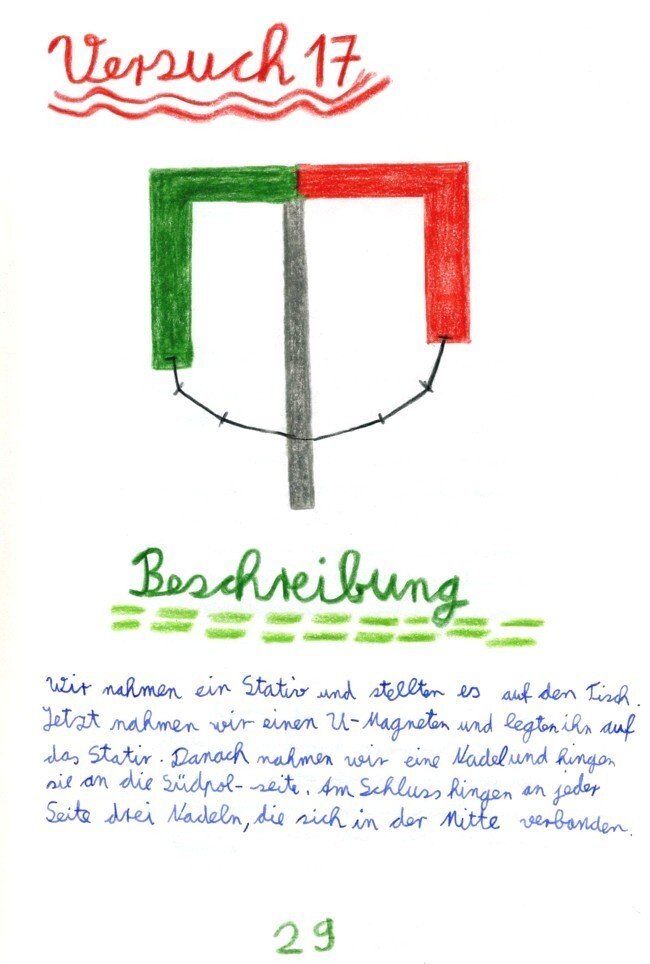 Versuch 17
Beschreibung
Wir nahmen ein Stativ und stellten es auf den Tisch.
Jetzt nahmen wir einen U-Magneten und legten ihn auf
das Stativ. Danach nahmen wir eine Nadel und hingen
sie an die Südpol-seite. Am Schluss hingen an jeder
Seite drei Nadeln, die sich in der Mitte verbanden.
29